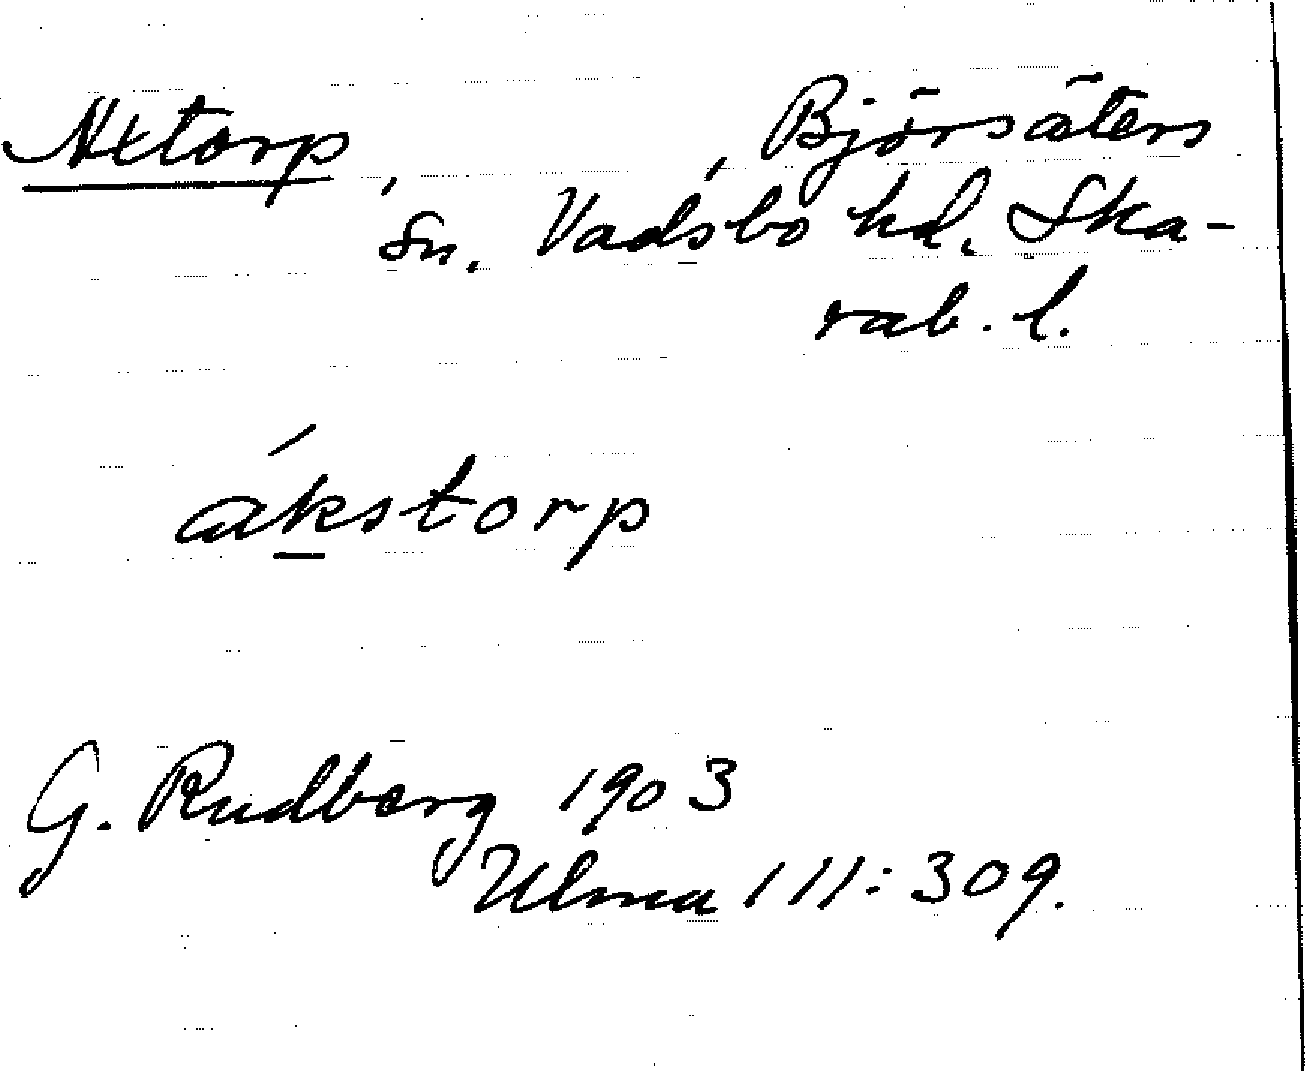 Axtorp, Björsäters
sn. Vadsbo hd. Ska-
rab. l.
ákstorp
G. Rudberg 1903
Ulma 111:309.